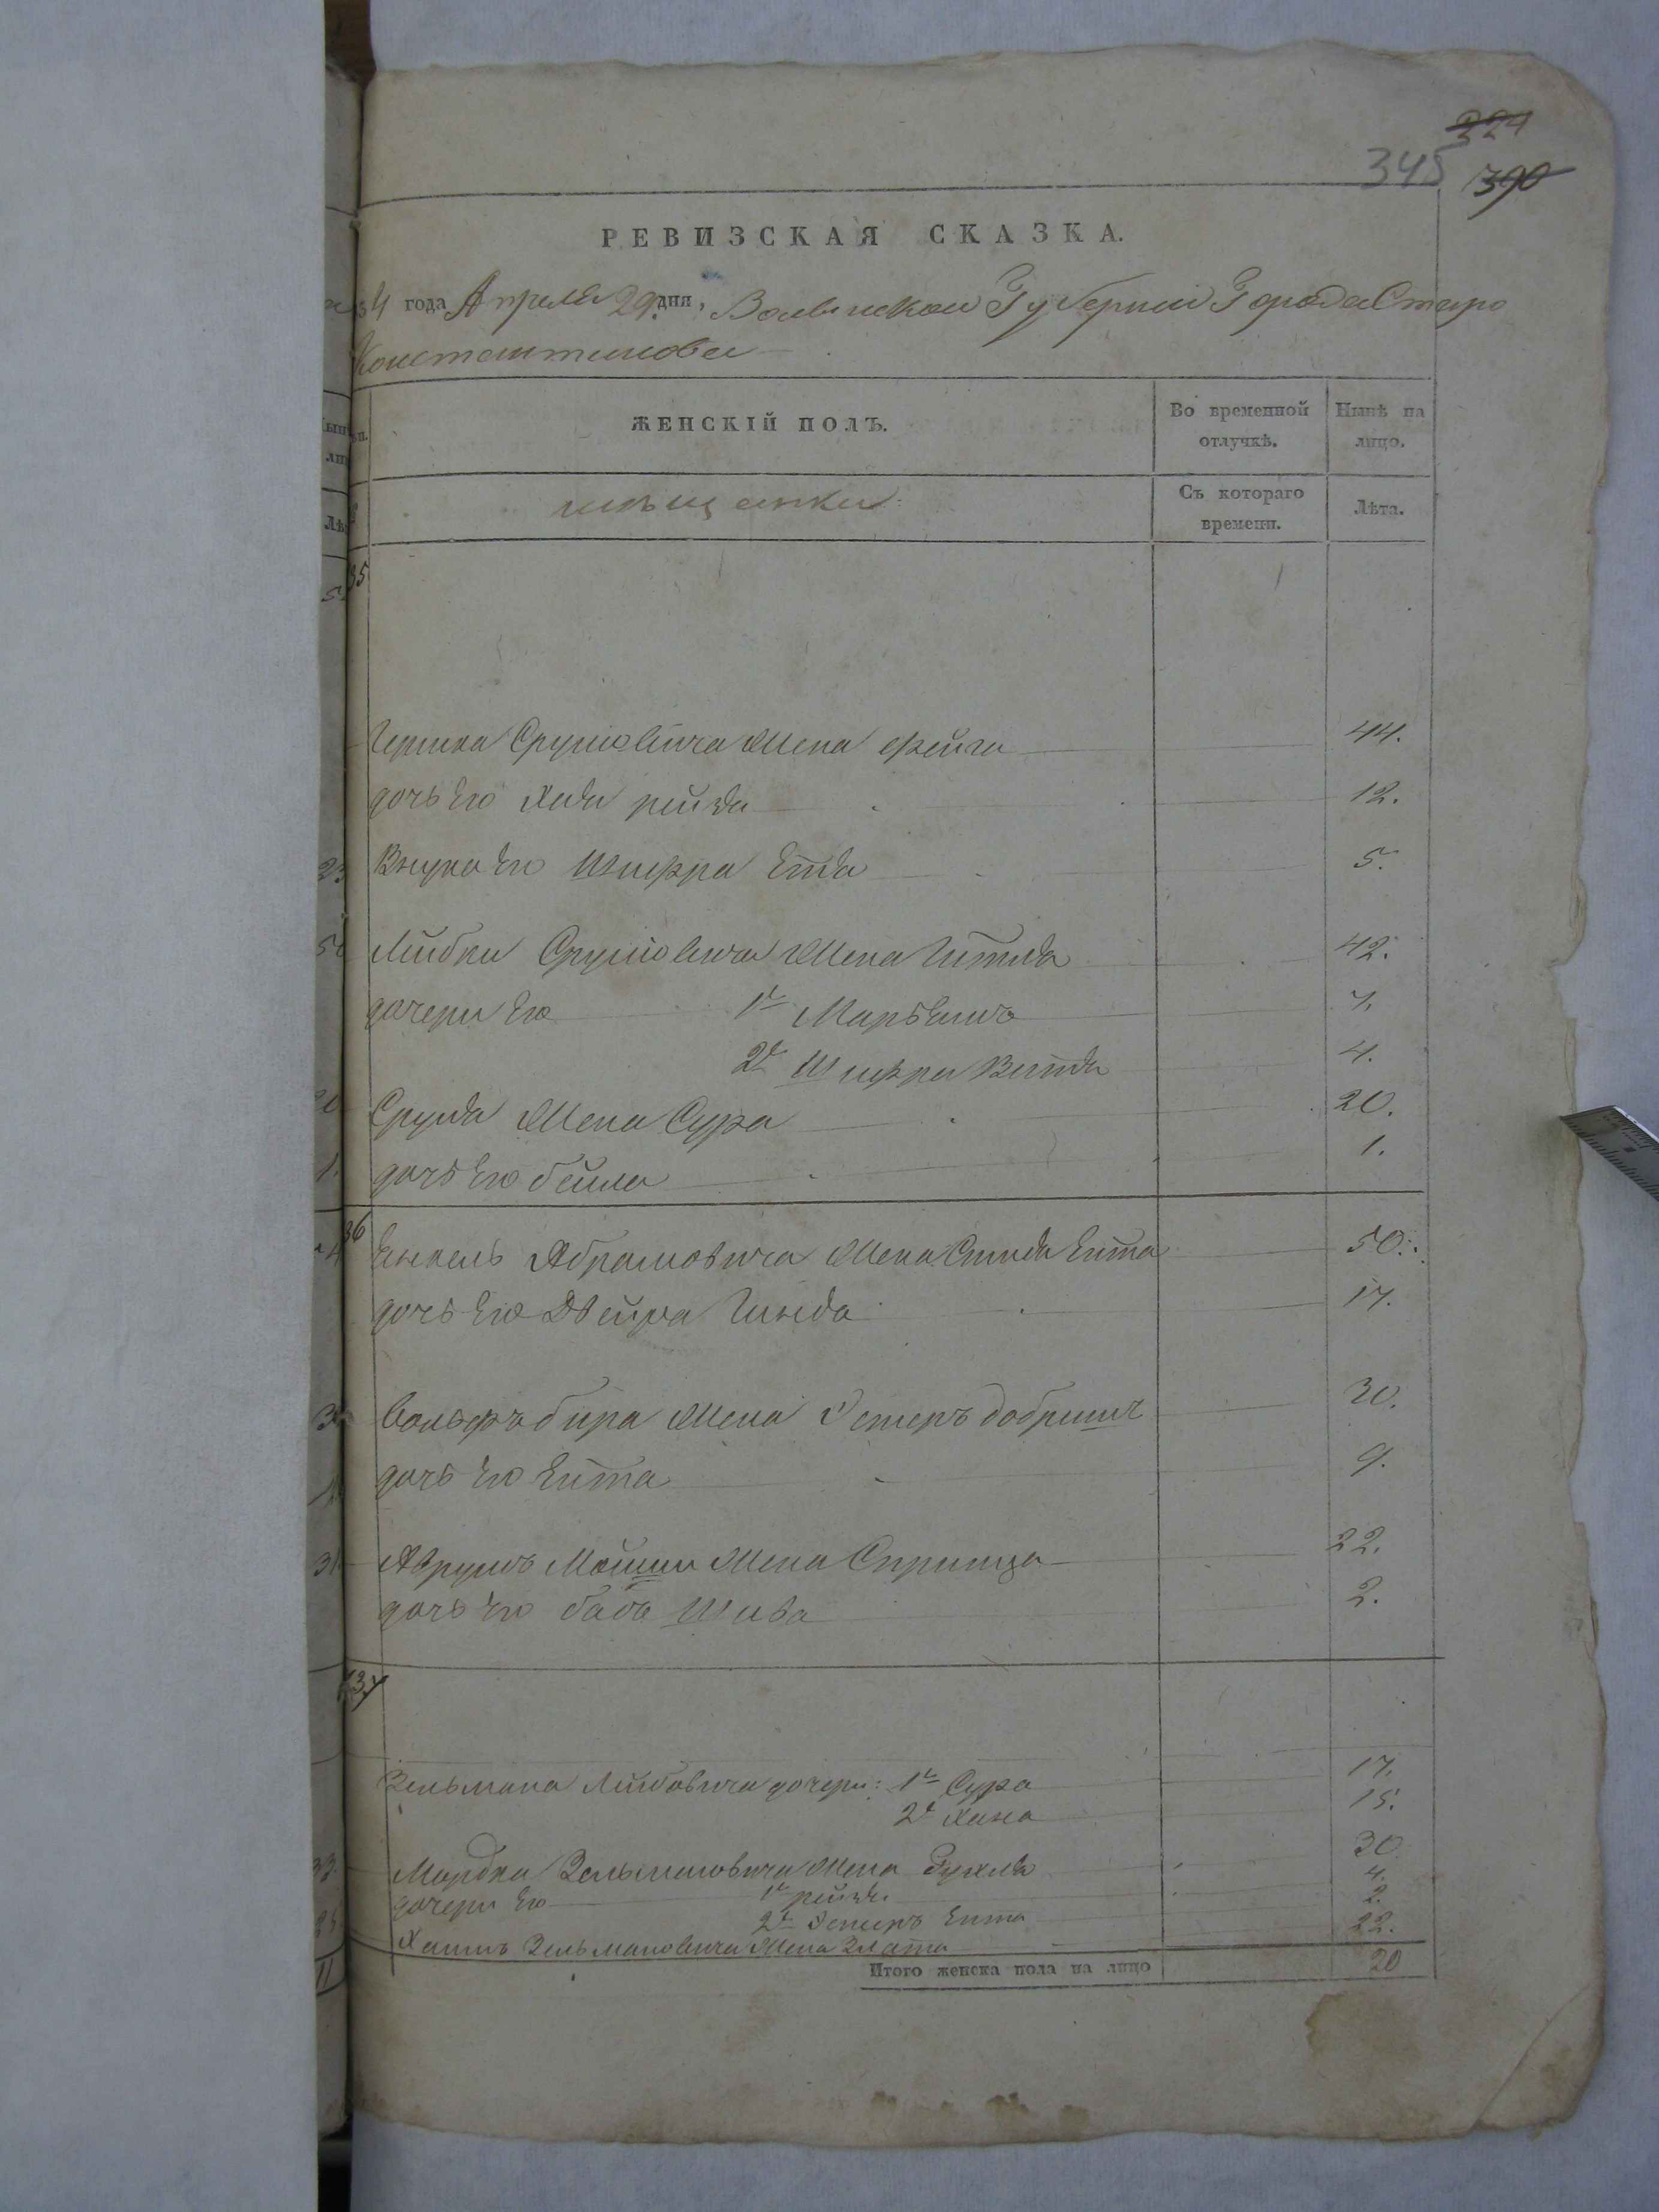 324
345 390
РЕВИЗСКАЯ СКАЗКА.
34 года Апреля 29. дня, Волынской Губернии Города Старо
Константинова
ЖЕНСКІЙ ПОЛЪ.
Во временной отлучкѣ.
Нынѣ на лицо.
мѣщанки
Съ котораго времени.
Лѣта.
35
Гершка Сруліовича жена фейга 44.
дочь Его Хаи рейзя 12.
Внука Его Шифра Етта 5.
Лейбки Сруліовича жена 42.
дочери Его 1я Марьямъ 7.
2я Шифра 4.
Сруля жена Сура 20.
дочь Его бейла 1.
36
Янкель Абрамовича жена Ента 50.
дочь Его Двейра 17.
Вольфъ бира жена Эстеръ добришъ 30.
дочь Его Ента 9.
Аврумъ Мошки жена Спринца 22.
дочь Его баба Шива 2.
37
Зельмана Лейбовича дочери: 1я Сура 17.
2я Хана 15.
Мордка Зельмановича жена Рухля 30.
дочери Его 1я рейзя. 4.
2я Эстеръ Ента 2.
Хаимъ Зельмановича жена Злата 22.
Итого женска пола на лицо 20